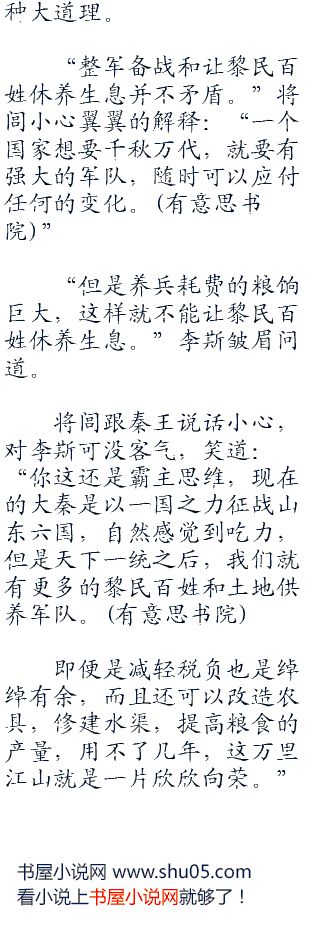 种大道理。
“整军备战和让黎民百
姓休养生息并不矛盾。”将
闾小心翼翼的解释：“一个
国家想要千秋万代，就要有
强大的军队，随时可以应付
任何的变化。(有意思书
院)”
“但是养兵耗费的粮饷
巨大，这样就不能让黎民百
姓休养生息。”李斯皱眉问
道。
将闾跟秦王说话小心，
对李斯可没客气，笑道：
“你这还是霸主思维，现在
的大秦是以一国之力征战山
东六国，自然感觉到吃力，
但是天下一统之后，我们就
有更多的黎民百姓和土地供
养军队。(有意思书院)
即便是减轻税负也是绰
绰有余，而且还可以改造农
具，修建水渠，提高粮食的
产量，用不了几年，这万里
江山就是一片欣欣向荣。”
书屋小说网 www.shu05.com
看小说上书屋小说网就够了！